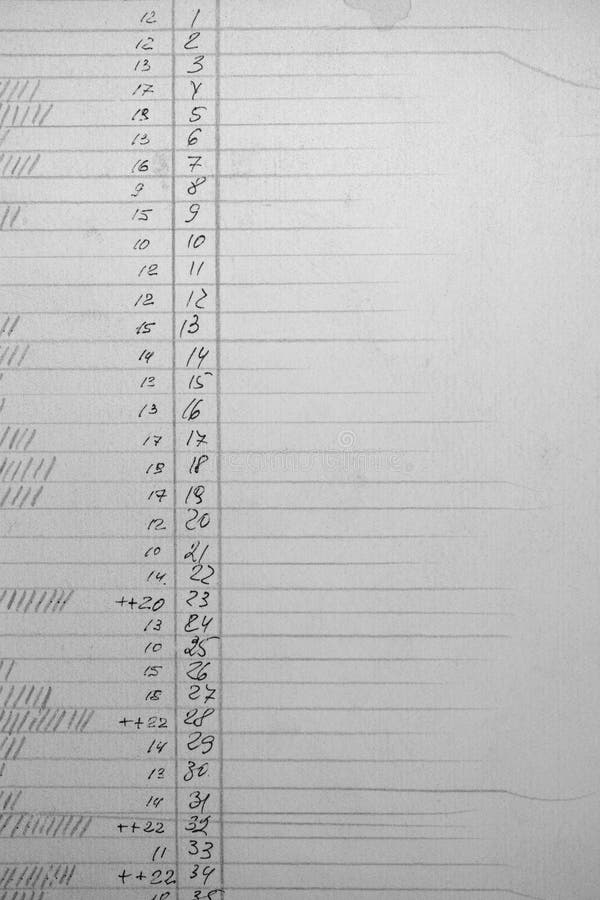 12 1
12 2
13 3
17 4
19 5
13 6
16 7
9 8
15 9
10 10
12 11
12 12
15 13
14 14
12 15
13 16
17 17
19 18
17 19
12 20
10 21
14 22
++20 23
13 24
10 25
15 26
18 27
++22 28
14 29
13 30
14 31
++22 32
11 33
++22 34
35